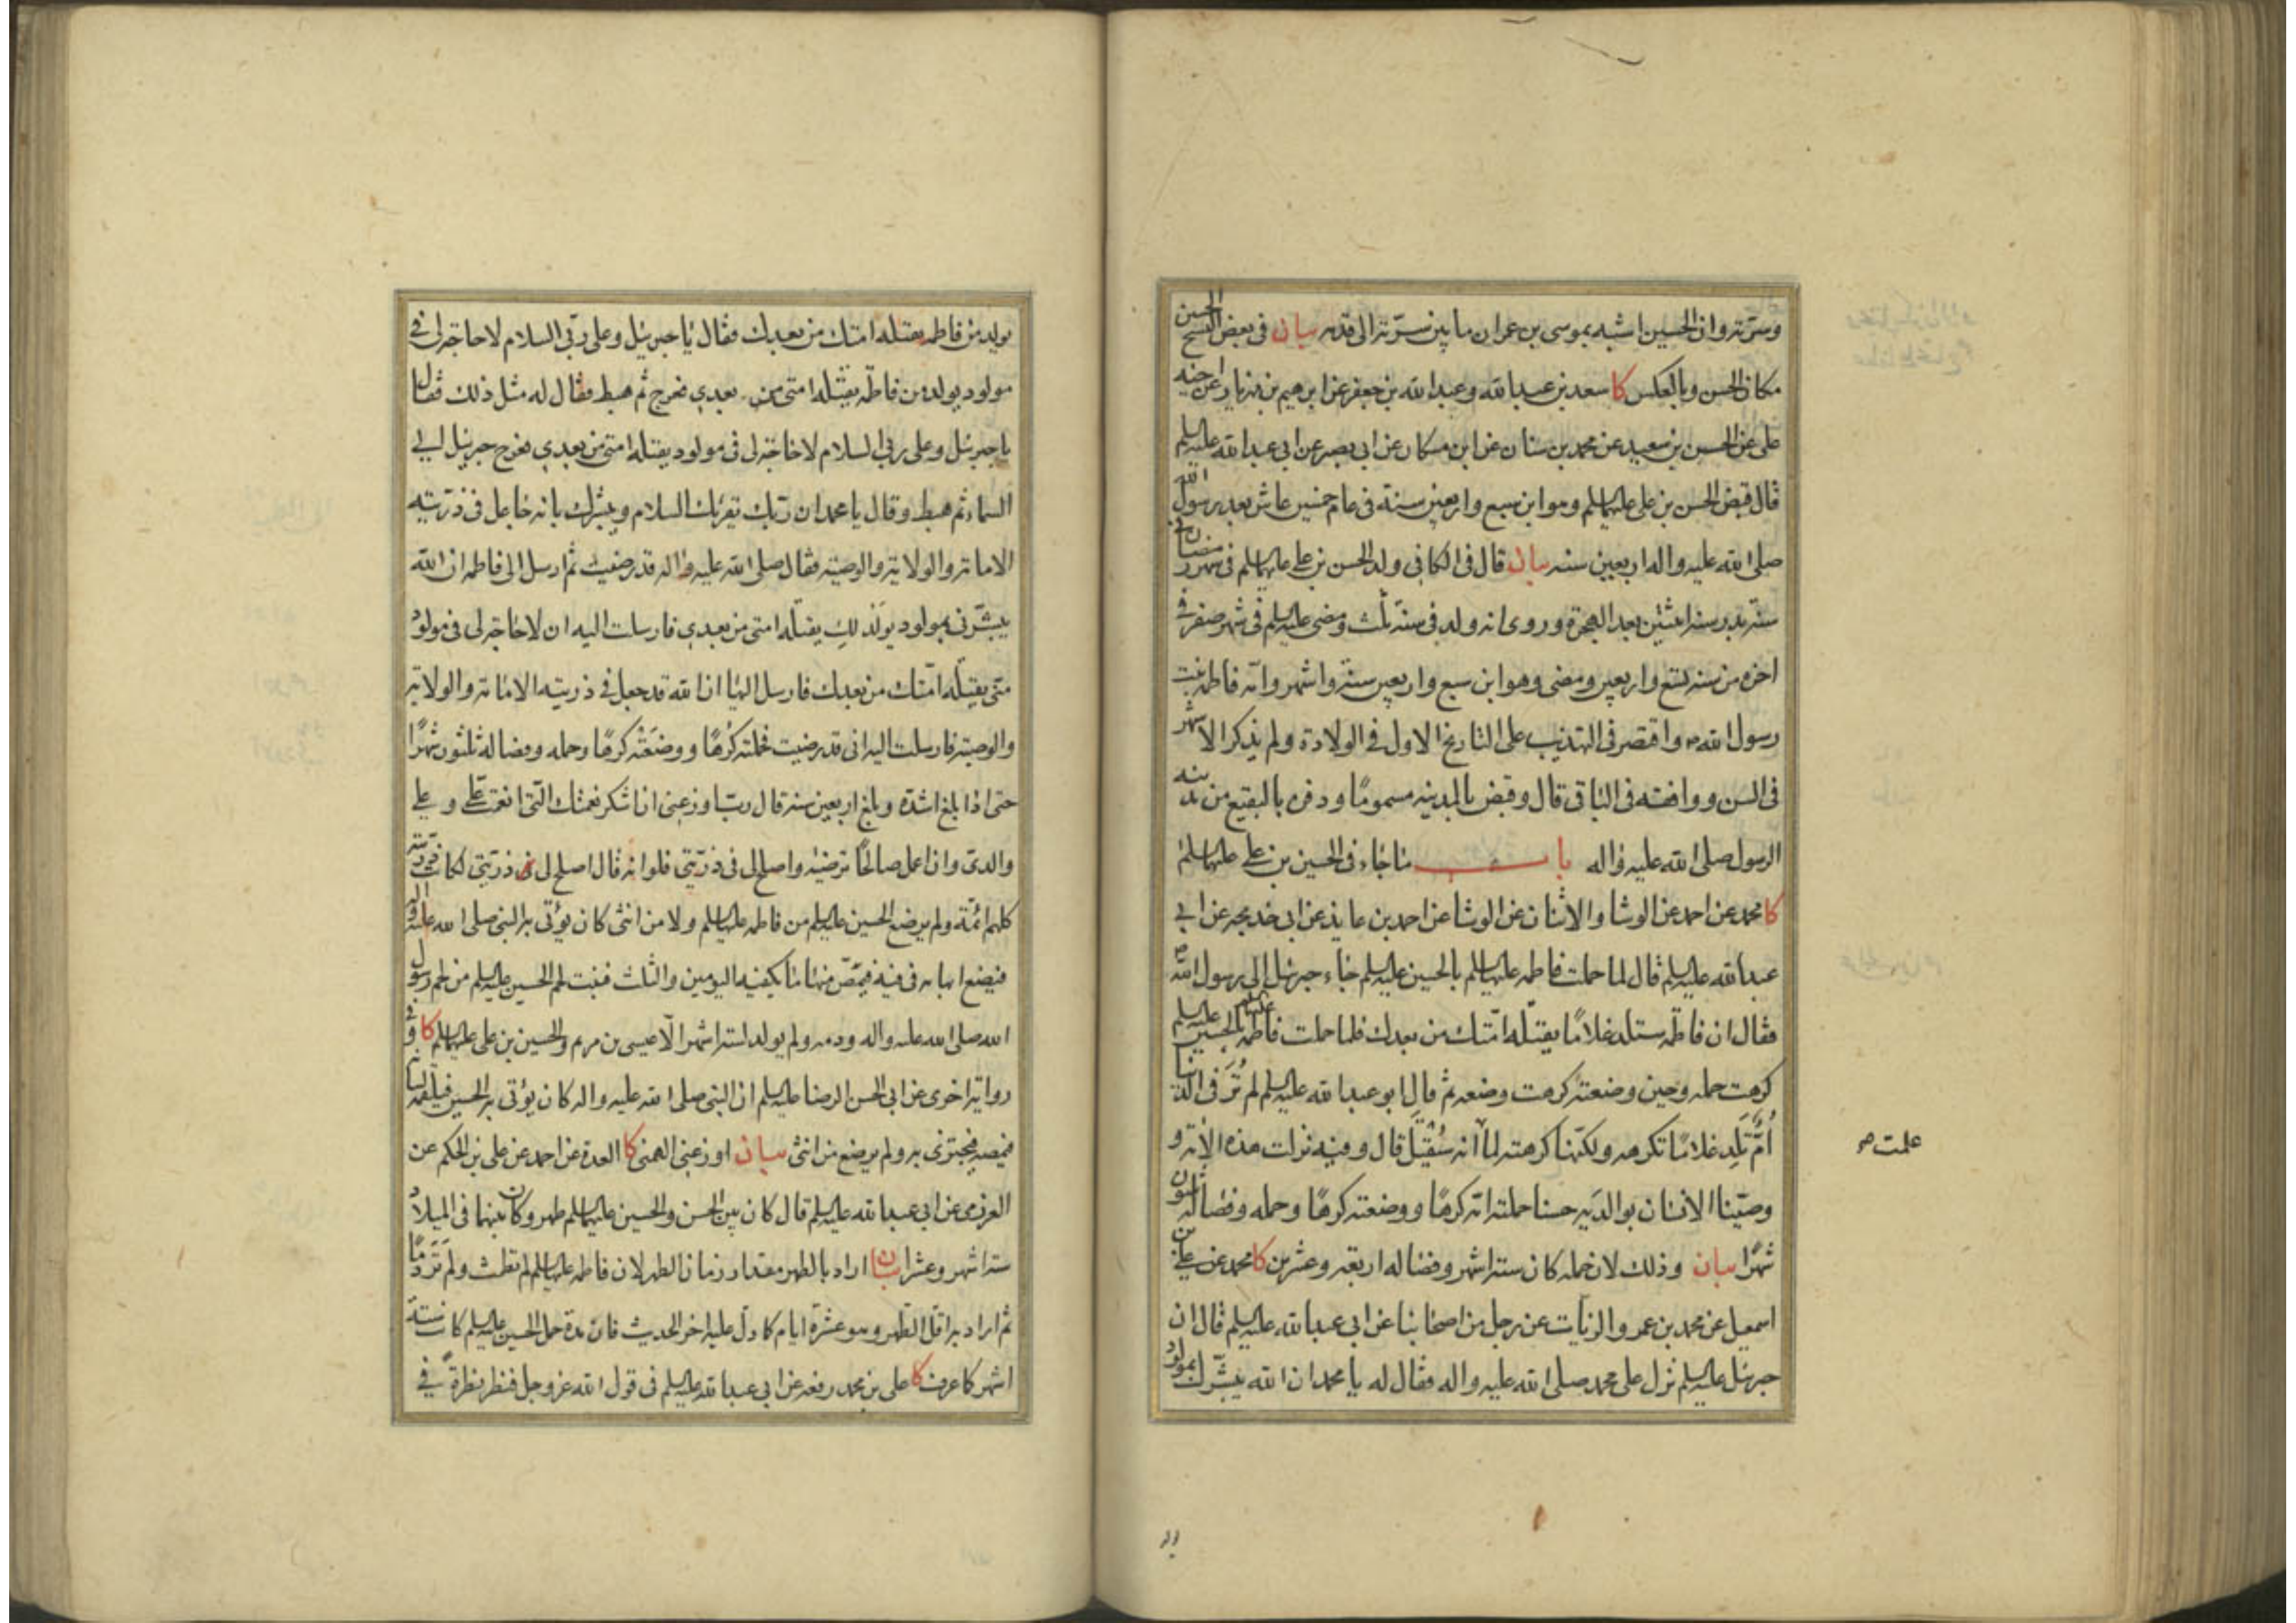 وسرّته وان الحسين اشبه بموسى بن عمران ما بين سرّته الى قدمه بيان فى بعض النسخ الحسين
مكان الحسن وبالعكس كا سعد بن عبدالله وعبدالله بن جعفر عن ابرهيم بن مهزيار عن اخيه
على عن الحسين بن سعيد عن محمد بن سنان عن ابن مسكان عن ابى بصير عن ابى عبدالله عليه السلم
قال قبض الحسن بن على عليهما السلم وهو ابن سبع واربعين سنة فى عام خمسين عاش بعد رسول الله
صلى الله عليه واله اربعين سنه بيان قال فى الكافى ولد الحسن بن على عليهما السلم فى شهر رمضان فى
سنة بدر سنة اثنتين بعد الهجرة وروى انه ولد فى سنة ثلث ومضى عليه السلم فى شهر صفر فى
اخره من سنة تسع واربعين ومضى وهو ابن سبع واربعين سنة واشهر وامه فاطمه بنت
رسول الله ص واقتصر فى التهذيب على التاريخ الاول فى الولادة ولم يذكر الاشهر
فى السن ووافقه فى الباقى قال وقبض بالمدينه مسمومًا ودفن بالبقيع من مدينه
الرسول صلى الله عليه واله باب ما جاء فى الحسين بن على عليهما السلم
كا محمد عن احمد عن الوشا والاثنان عن الوشا عن احمد بن عايذ عن ابى خديجه عن ابى
عبدالله عليه السلم قال لما حملت فاطمه عليها السلم بالحسين عليه السلم جاء جبرئيل الى رسول الله ص
فقال ان فاطمة ستلد غلامًا يقتله امّتك من بعدك فلما حملت فاطمه عليها السلم بالحسين عليه السلم
كرهت حمله وحين وضعته كرهت وضعه ثم قال ابو عبدالله عليه السلم لم تُرَ فى الدنيا
اُمٌّ تَلِد غلامًا تكرهه ولكنّها كرهته لما انه سُيُقتَل قال وفيه نزلت هذه الاٰية و
علمت ص
وصّينا الانسان بوالدَيه حسنا حملته امّه كرهًا ووضعته كرهًا وحمله وفصاله ثلثون
شهرًا بيان وذلك لان حمله كان ستة اشهر وفصاله اربعة وعشرين كا محمد عن على بن
اسمعيل عن محمد بن عمرو الزيات عن رجل من اصحابنا عن ابى عبدالله عليه السلم قال ان
جبرئيل عليه السلم نزل على محمد صلى الله عليه واله فقال له يا محمد ان الله يبشّرك بمولود
يولد
يولد من فاطمه يقتله امتك من بعدك فقال يا جبرئيل وعلى ربّى السلام لا حاجة لى فى
مولود يولد من فاطمة يقتله امتى من بعدي فعرج ثم هبط فقال له مثل ذلك فقال
يا جبرئيل وعلى ربى السلام لا حاجة لى فى مولود يقتله امتى من بعدي فعرج جبرئيل الى
السماء ثم هبط وقال يا محمد ان ربّك يقرئك السلام ويبشّرك بانه جاعل فى ذرّيته
الامامة والولاية والوصيّه فقال صلى الله عليه واله قد رضيت ثم ارسل الى فاطمه ان الله
يبشّرنى بمولود يولَد لكِ يقتله امتى من بعدي فارسلت اليه ان لا حاجة لى فى مولود
منّى يقتله امّتك من بعدك فارسل اليها ان الله قد جعل فى ذريته الامامة والولاية
والوصيّة فارسلت اليه انى قد رضيت فحملته كُرْهًا ووضَعَتْه كرهًا وحمله وفصاله ثلثون شهرًا
حتى اذا بلغ اشدّه وبلغ اربعين سنة قال ربّ اوزعنى ان اشكر نعمتك التى انعمت علىّ وعلى
والدىّ وان اعمل صالحًا ترضيٰه واصلح لى فى ذرّيّتي فلو انه قال اصلح لى ذرّيّتى لكانت ذرّيّته
كلهم ائمّة ولم يرضع الحسين عليه السلم من فاطمه عليها السلم ولا من انثى كان يؤتى به النبى صلى الله عليه واله
فيضع ابهامه فى فيه فيمصّ منها ما يكفيه اليومين والثلث فنبت لحم الحسين عليه السلم من لحم رسول
الله صلى الله عليه واله ودمه ولم يولد لستة اشهر الّا عيسى بن مريم والحسين بن على عليهما السلم كا وفى
رواية اخرى عن ابى الحسن الرضا عليه السلم ان النبى صلى الله عليه واله كان يؤتى به الحسين فيلقمه لسانه
فيمصه فيجتزى به ولم يرضع من انثى بيان اوزعنى الهمنى كا العدة عن احمد عن على بن الحكم عن
العرزمى عن ابى عبدالله عليه السلم قال كان بين الحسن والحسين عليهما السلم طهر وكان بينهما فى الميلاد
ستة اشهر وعشرا بيان اراد بالطهر مقدار زمان الطهر لان فاطمه عليها السلم لم تطمث ولم تَرَ دَمًا
ثم اراد به اقل الطهر وهو عشرة ايام كما دلّ عليه اخر الحديث فان مدة حمل الحسين عليه السلم كانت ستة
اشهر كما عرفت كا على بن محمد رفعه عن ابى عبدالله عليه السلم فى قول الله عز وجل فنظر نظرةً فى